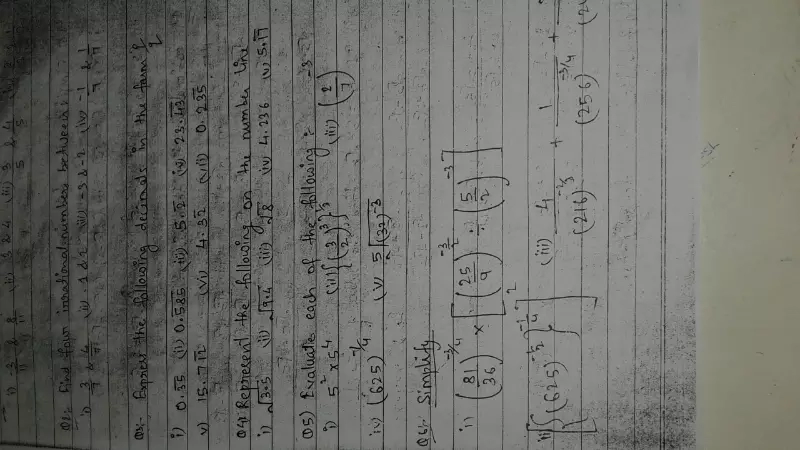 Q2:- Find four irrational numbers between:
i) 3/7 & 4/7 (ii) 1 & 2 (iii) -3 & -2 (iv) -1/7 & 1/7
Q3:- Express the following decimals in the form p/q
i) 0.35 (ii) 0.585 (iii) 5.2 (iv) 23.43
v) 15.712 (vi) 4.32 (vii) 0.235
Q4:- Represent the following on the number line
i) √3.5 (ii) √7.4 (iii) √8 (iv) 4.236 (v) 5.17
Q5) Evaluate each of the following:
i) 5² × 5⁴ (ii) {(3/2)³}² (iii) (2/7)⁻³
iv) (625)^-1/4 (v) 5√(32)⁻³
Q6:- Simplify
i) (81/36)^-3/4 × [(25/9)^-3/2 ÷ (5/2)⁻³]
ii) [{(625)^-1/2}^-1/4]² (iii) 4/(216)^-2/3 + 1/(256)^-3/4 +